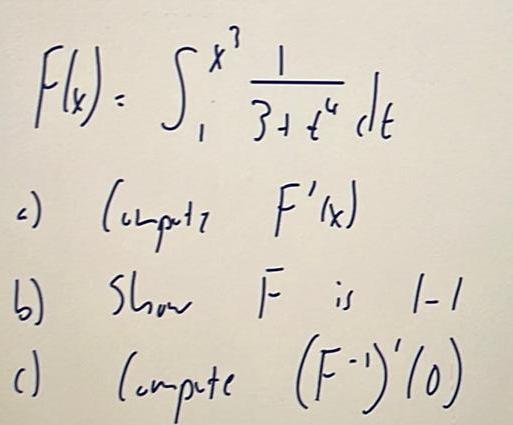 F(x) = ∫₁^{x³} 1/(3+t⁴) dt
a) Compute F'(x)
b) Show F is 1-1
c) Compute (F⁻¹)'(0)